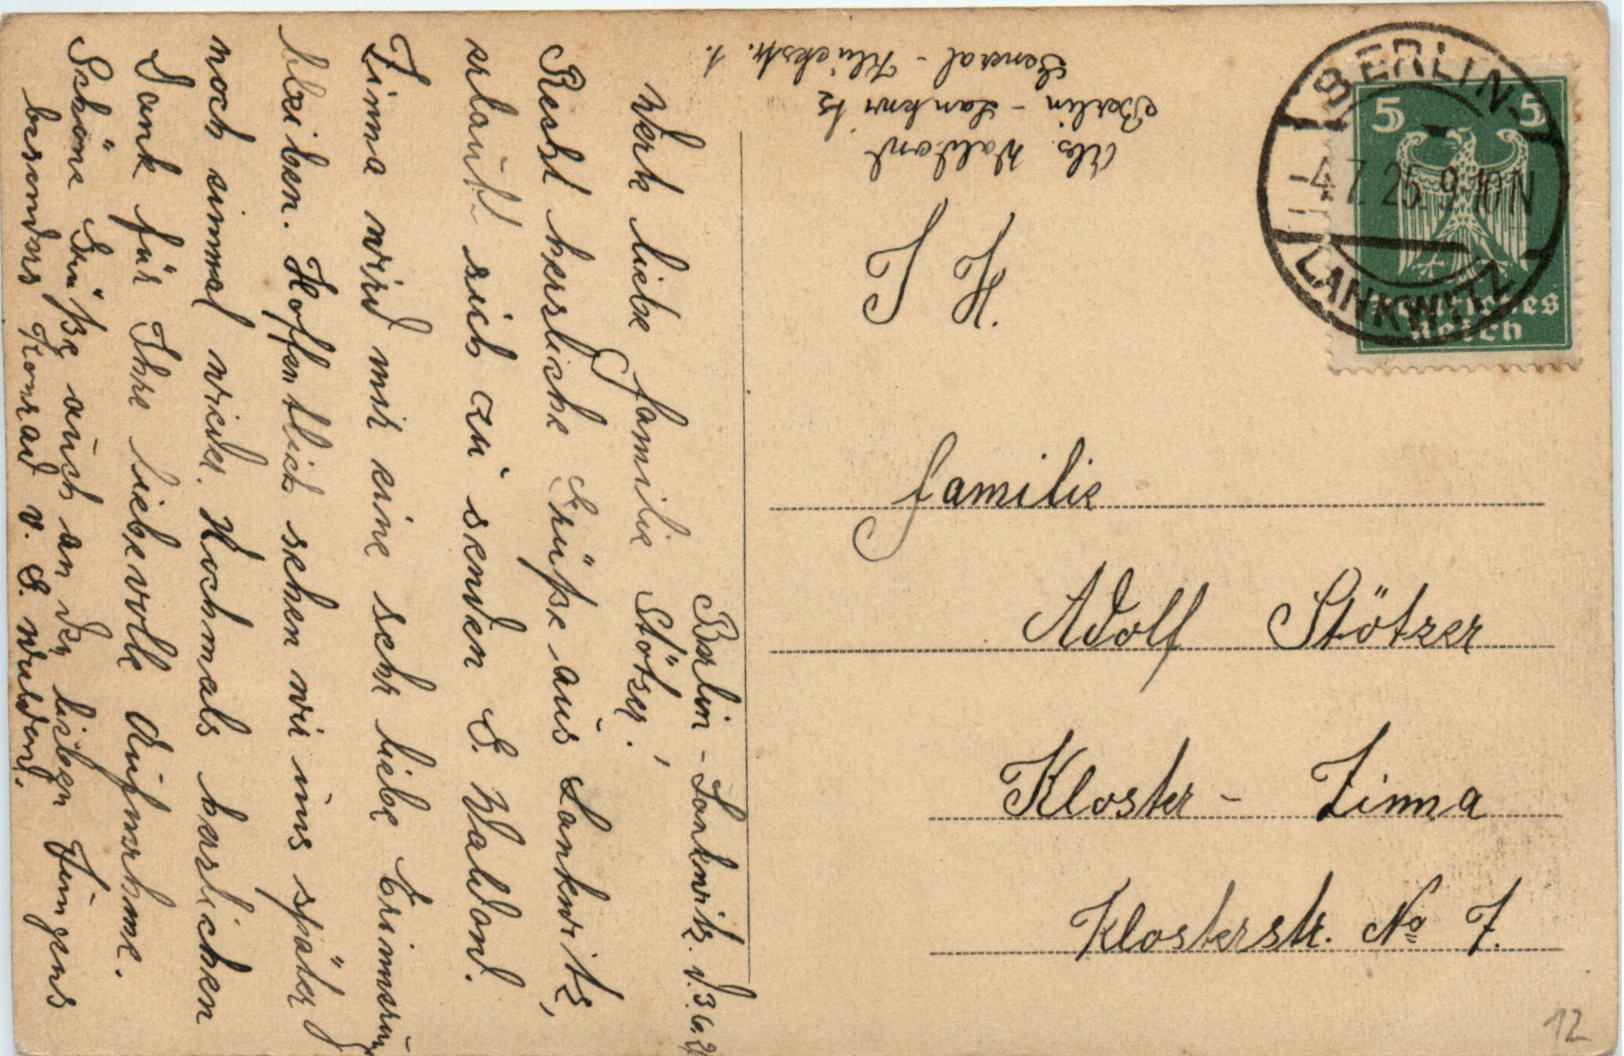 Berlin - Lankwitz. d. 3.6.2
Werte liebe Familie Stötzer!
Recht herzliche Grüße aus Lankwitz,
erlaubt sich zu senden E. Waldow.
Zinna wird mir eine sehr liebe Erinnerung
bleiben. Hoffentlich sehen wir uns später
noch einmal wieder. Nochmals herzlichen
Dank für Ihre liebevolle Aufnahme.
Schöne Grüße auch an den lieben Jungens
besonders Konrad v. E. Waldow.
Abs. Waldow
Berlin - Lankwitz
General - Kluckstr. 1.
BERLIN-
4.7.25. 9-10N
LANKWITZ
5 5
Deutsches
Reich
Familie
Adolf Stötzer
Kloster - Zinna
Klosterstr. No 7.
12